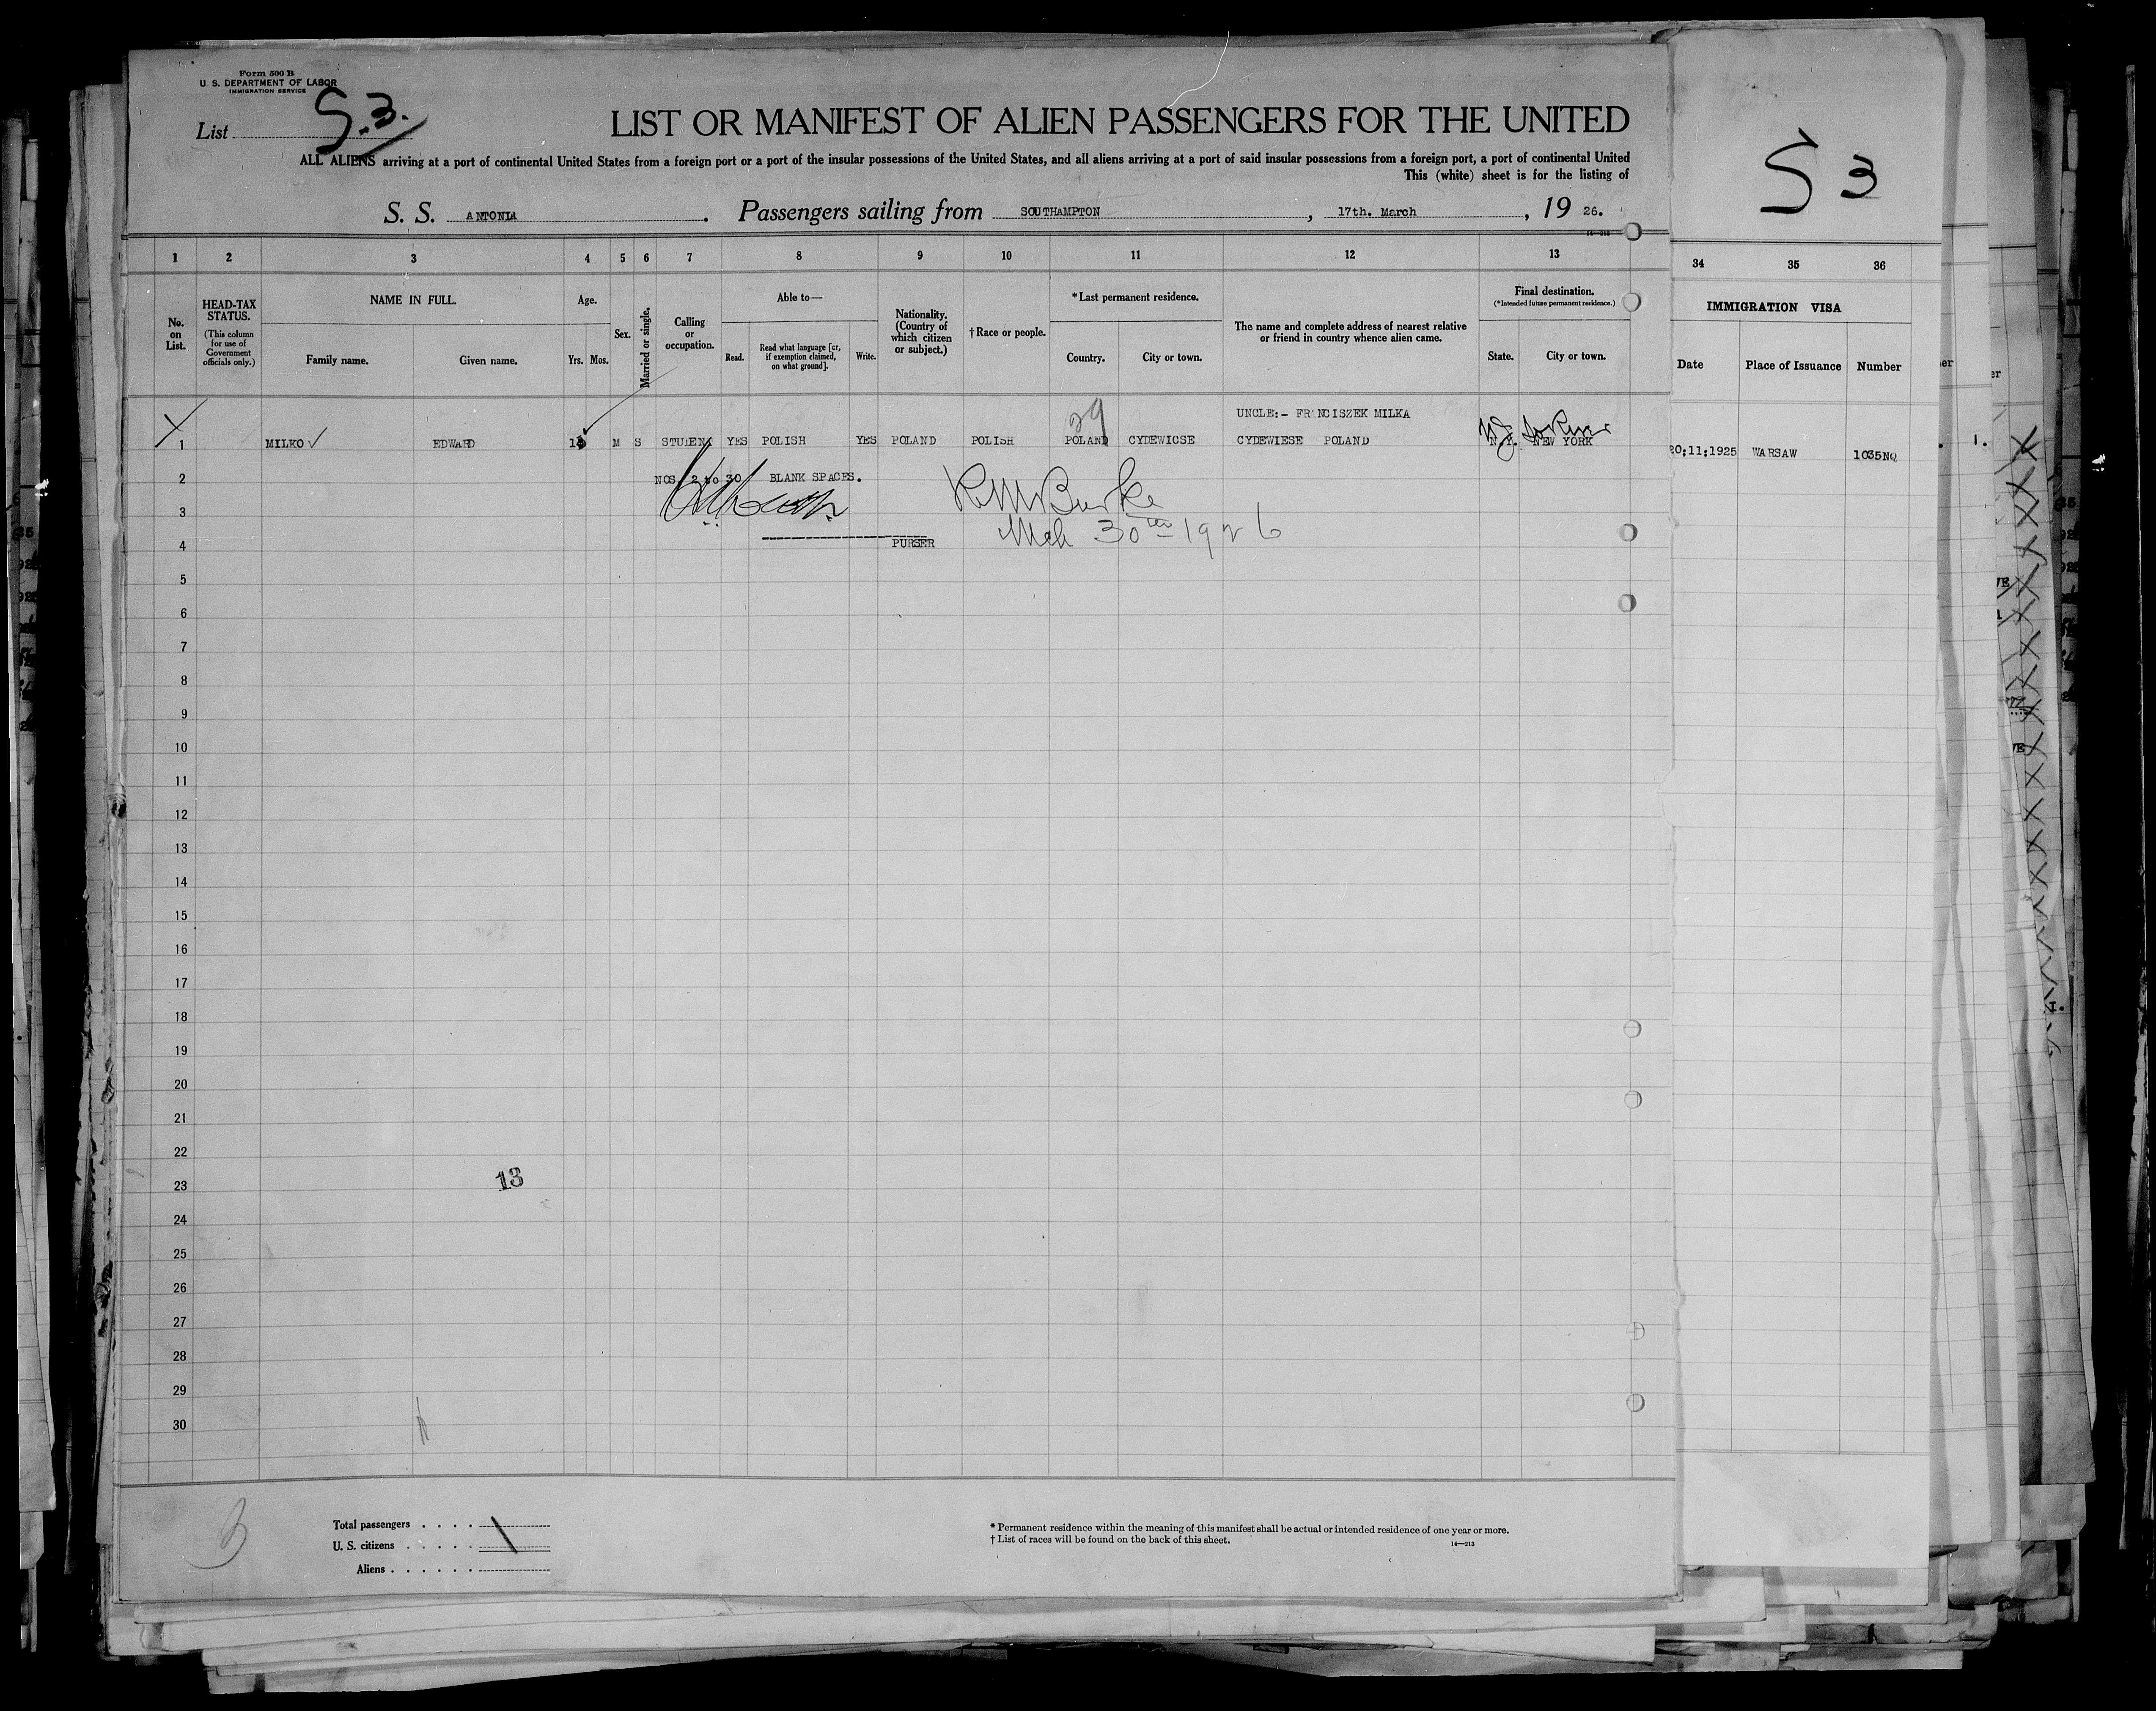 Form 500 B
U. S. DEPARTMENT OF LABOR
IMMIGRATION SERVICE
List S.3.
LIST OR MANIFEST OF ALIEN PASSENGERS FOR THE UNITED
ALL ALIENS arriving at a port of continental United States from a foreign port or a port of the insular possessions of the United States, and all aliens arriving at a port of said insular possessions from a foreign port, a port of continental United
This (white) sheet is for the listing of
S. S. ANTONIA. Passengers sailing from SOUTHAMPTON, 17th. March, 19 26.
S 3
1 2 3 4 5 6 7 8 9 10 11 12 13
34 35 36
No. on List.
HEAD-TAX STATUS.
(This column for use of Government officials only.)
NAME IN FULL.
Family name. Given name.
Age.
Yrs. Mos.
Sex.
Married or single.
Calling or occupation.
Able to—
Read. Read what language [or, if exemption claimed, on what ground]. Write.
Nationality. (Country of which citizen or subject.)
†Race or people.
*Last permanent residence.
Country. City or town.
The name and complete address of nearest relative or friend in country whence alien came.
Final destination.
(*Intended future permanent residence.)
State. City or town.
IMMIGRATION VISA
Date Place of Issuance Number
29 UNCLE:- FRANCISZEK MILKA
1 MILKO EDWARD M S STUDENT YES POLISH YES POLAND POLISH POLAND CYDEWICSE CYDEWIESE POLAND N.Y. NEW YORK 20;11;1925 WARSAW 1035NQ
2 NOS 2 to 30 BLANK SPACES.
RM Burke
3
Mch 30th 1926
4 PURSER
5
6
7
8
9
10
11
12
13
14
15
16
17
18
19
20
21
22
23 13
24
25
26
27
28
29
30
Total passengers . . . . 1
U. S. citizens . . . . .
Aliens . . . . . .
* Permanent residence within the meaning of this manifest shall be actual or intended residence of one year or more.
† List of races will be found on the back of this sheet.
14—213